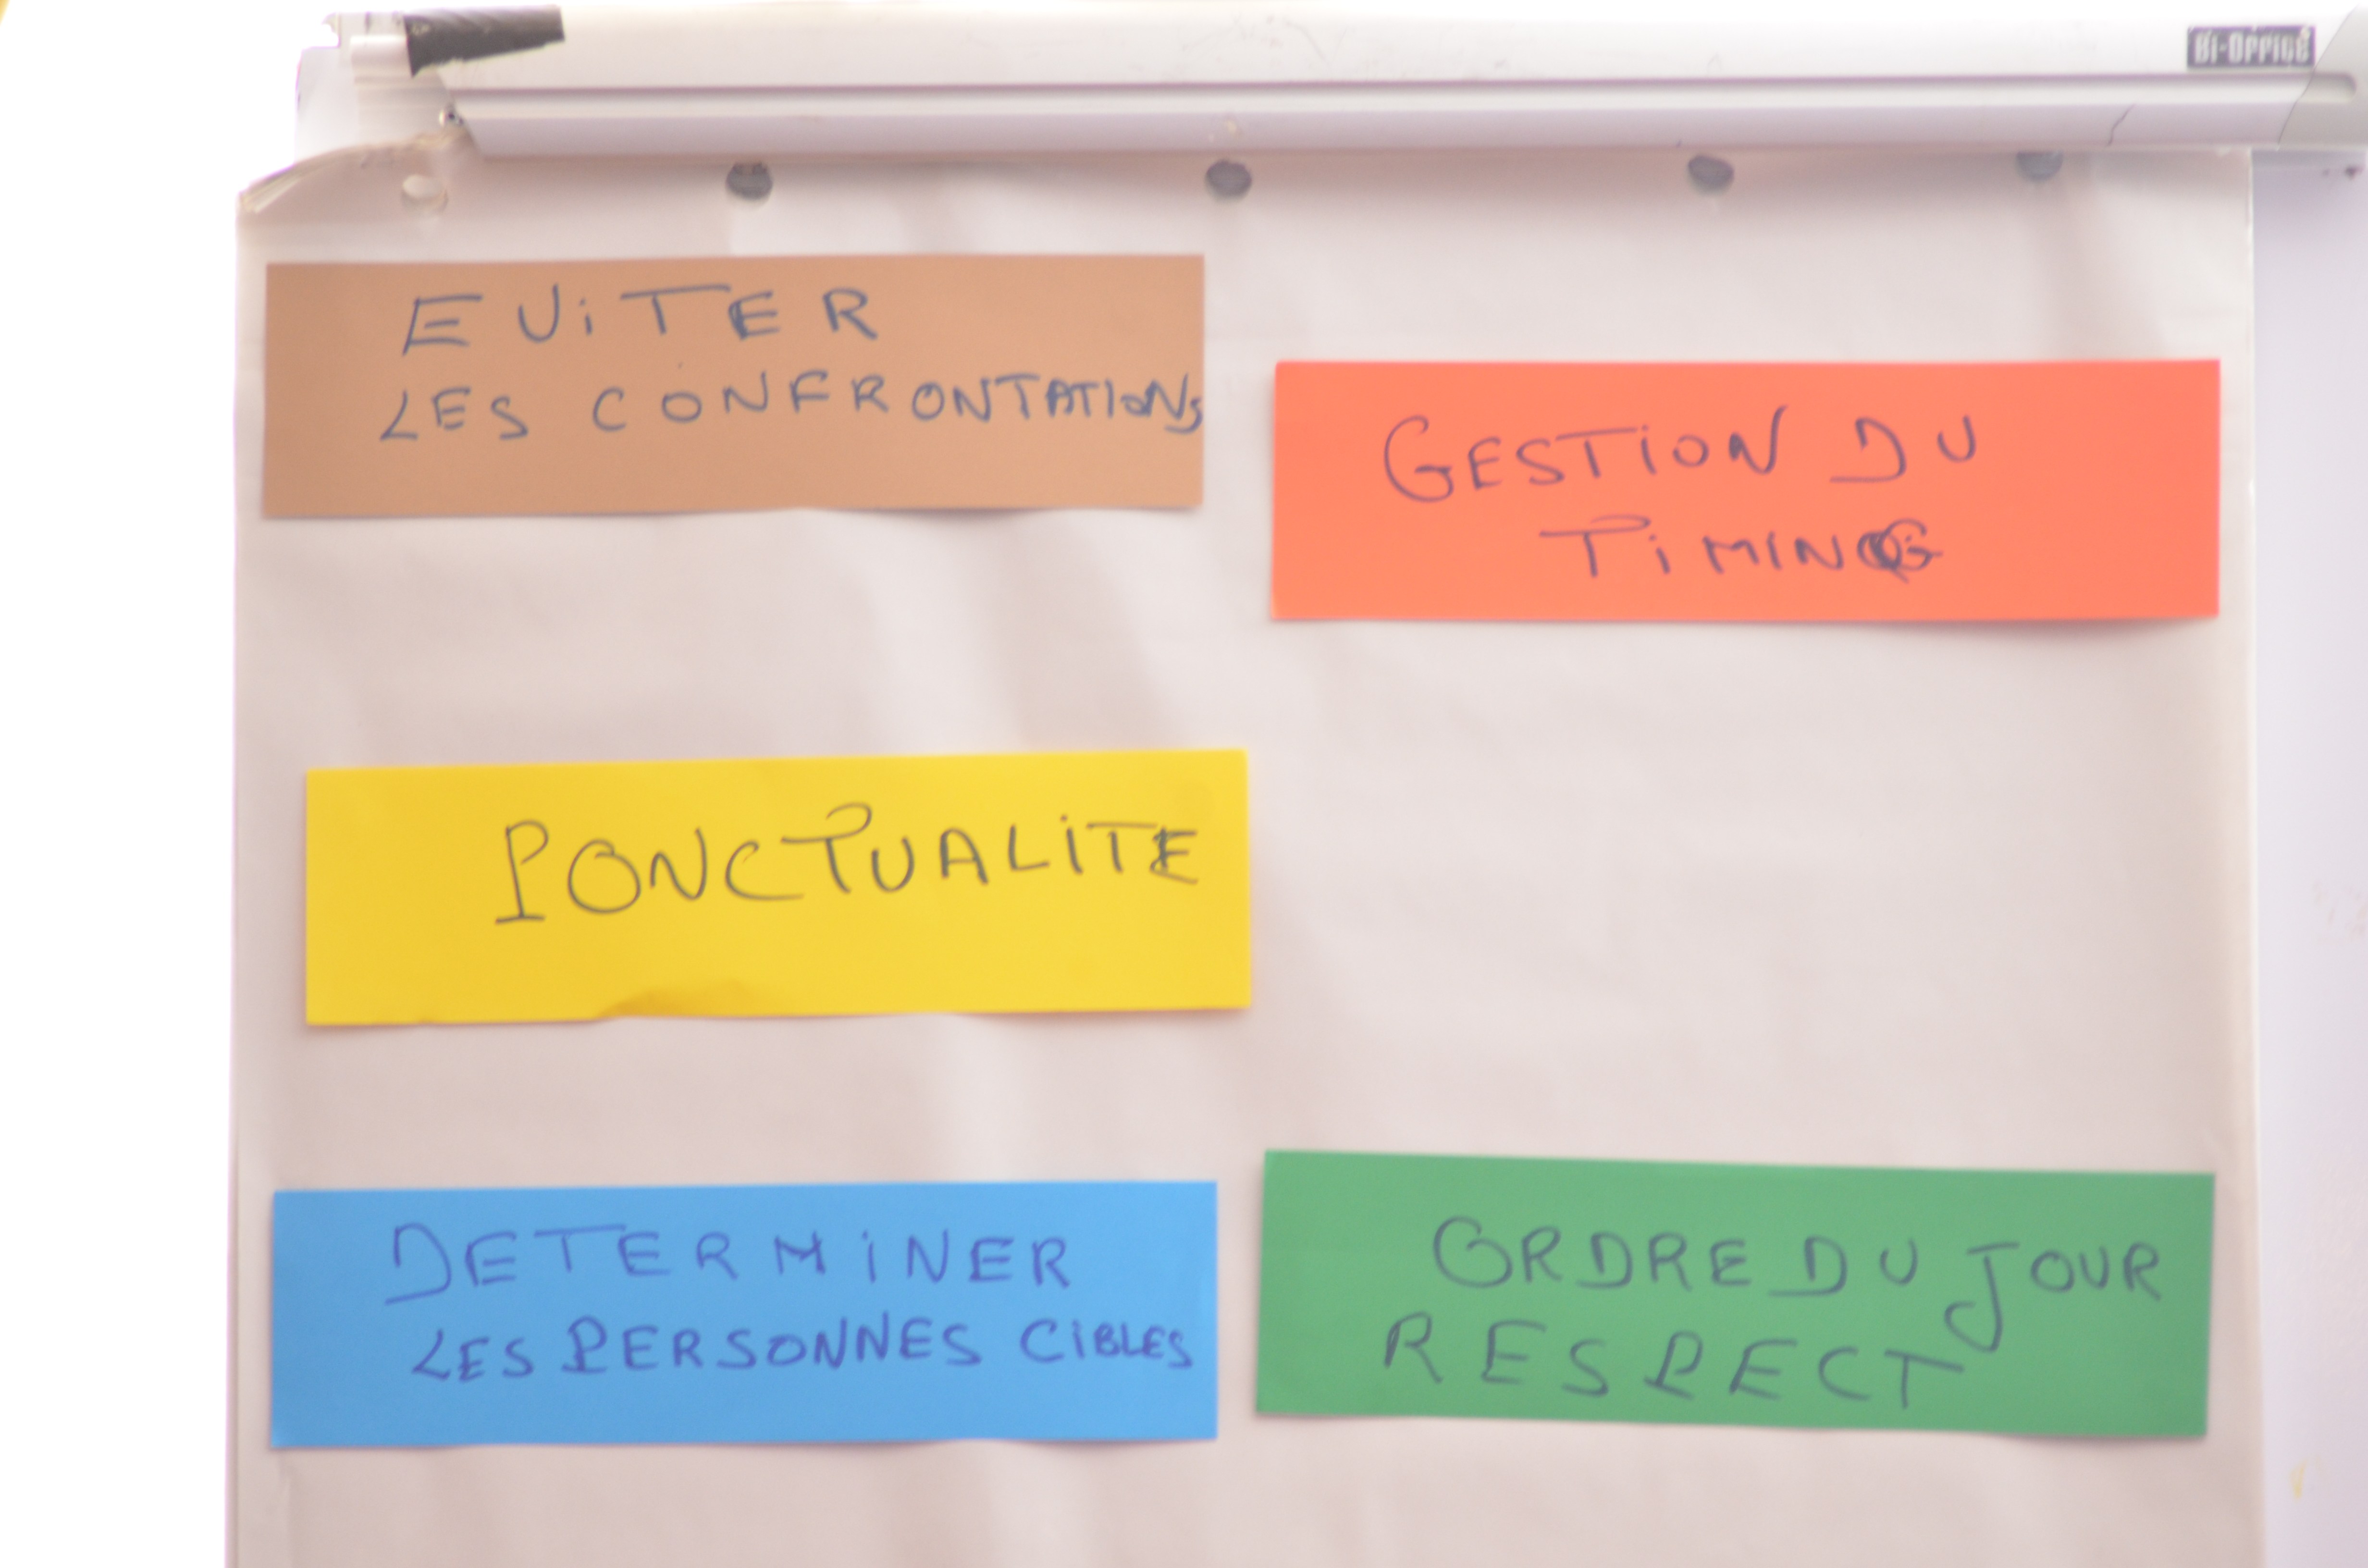 Bi-OFFICE
EViTER
LES CONFRONTATIONS
GESTiON DU
TiMING
PONCTUALiTE
DETERMiNER
LES PERSONNES CiBLES
ORDRE DU JOUR
RESPECT